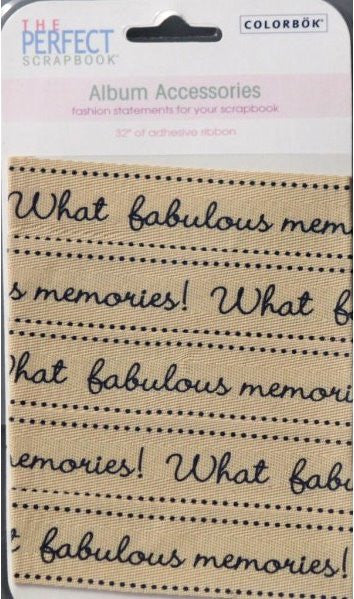 THE
PERFECT
SCRAPBOOK
COLORBÖK
Album Accessories
fashion statements for your scrapbook
32" of adhesive ribbon
What fabulous mem
s memories! What f
hat fabulous memori
emories! What fabu
t fabulous memories!